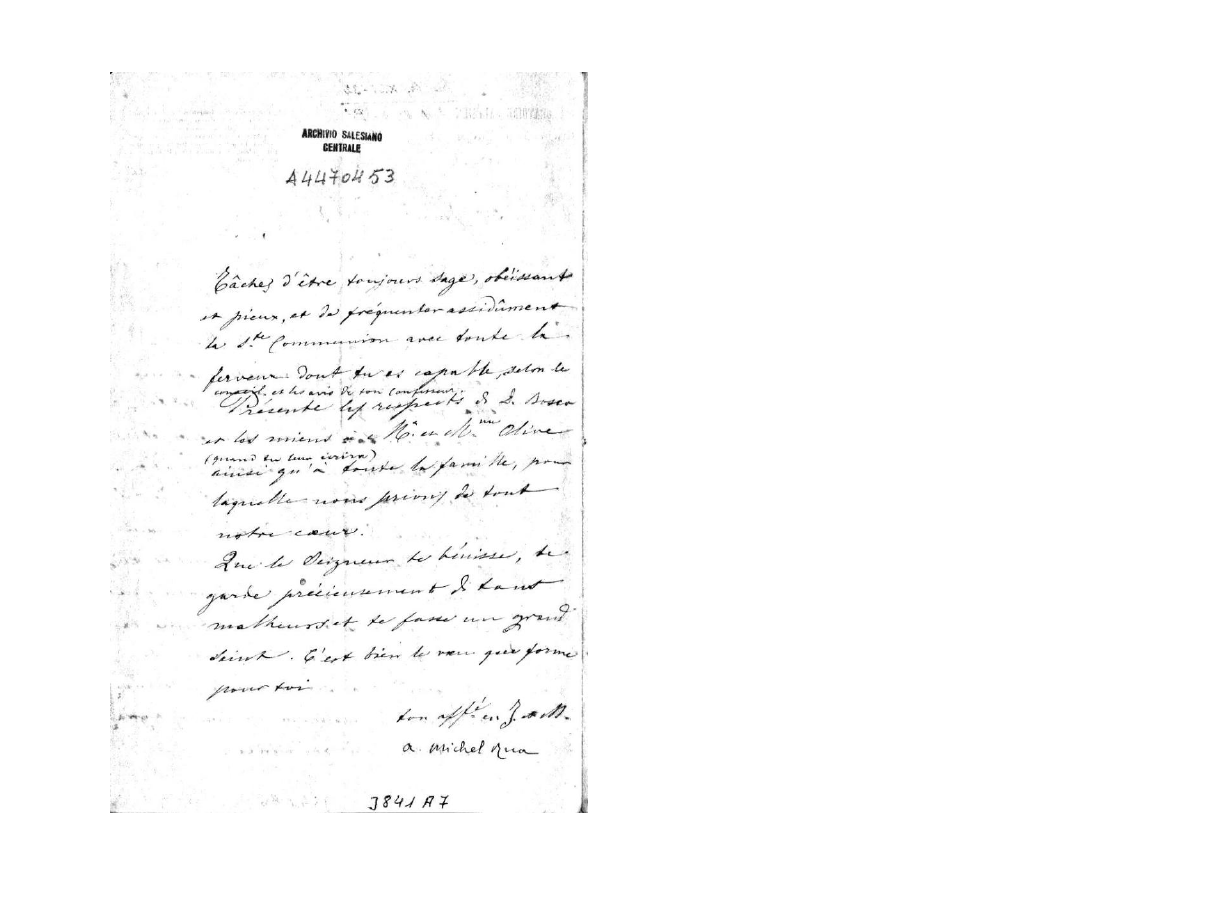 ARCHIVIO SALESIANO
CENTRALE
A4470453
Tâches d'être toujours sage, obéissant
et pieux, et de fréquenter assidûment
la Ste Communion avec toute la
ferveur dont tu es capable, selon le
conseil et les avis de ton confesseur.
Présente les respects de D. Bosco
et les miens à M. et Mme Olive
(quand tu leur écrira)
ainsi qu'à toute la famille, pour
laquelle nous prions de tout
notre cœur.
Que le Seigneur te bénisse, te
garde précieusement de tout
malheurs et te fasse un grand
Saint. C'est bien le vœu que forme
pour toi
ton affé en J. et M.
a. Michel Rua
3841 A7